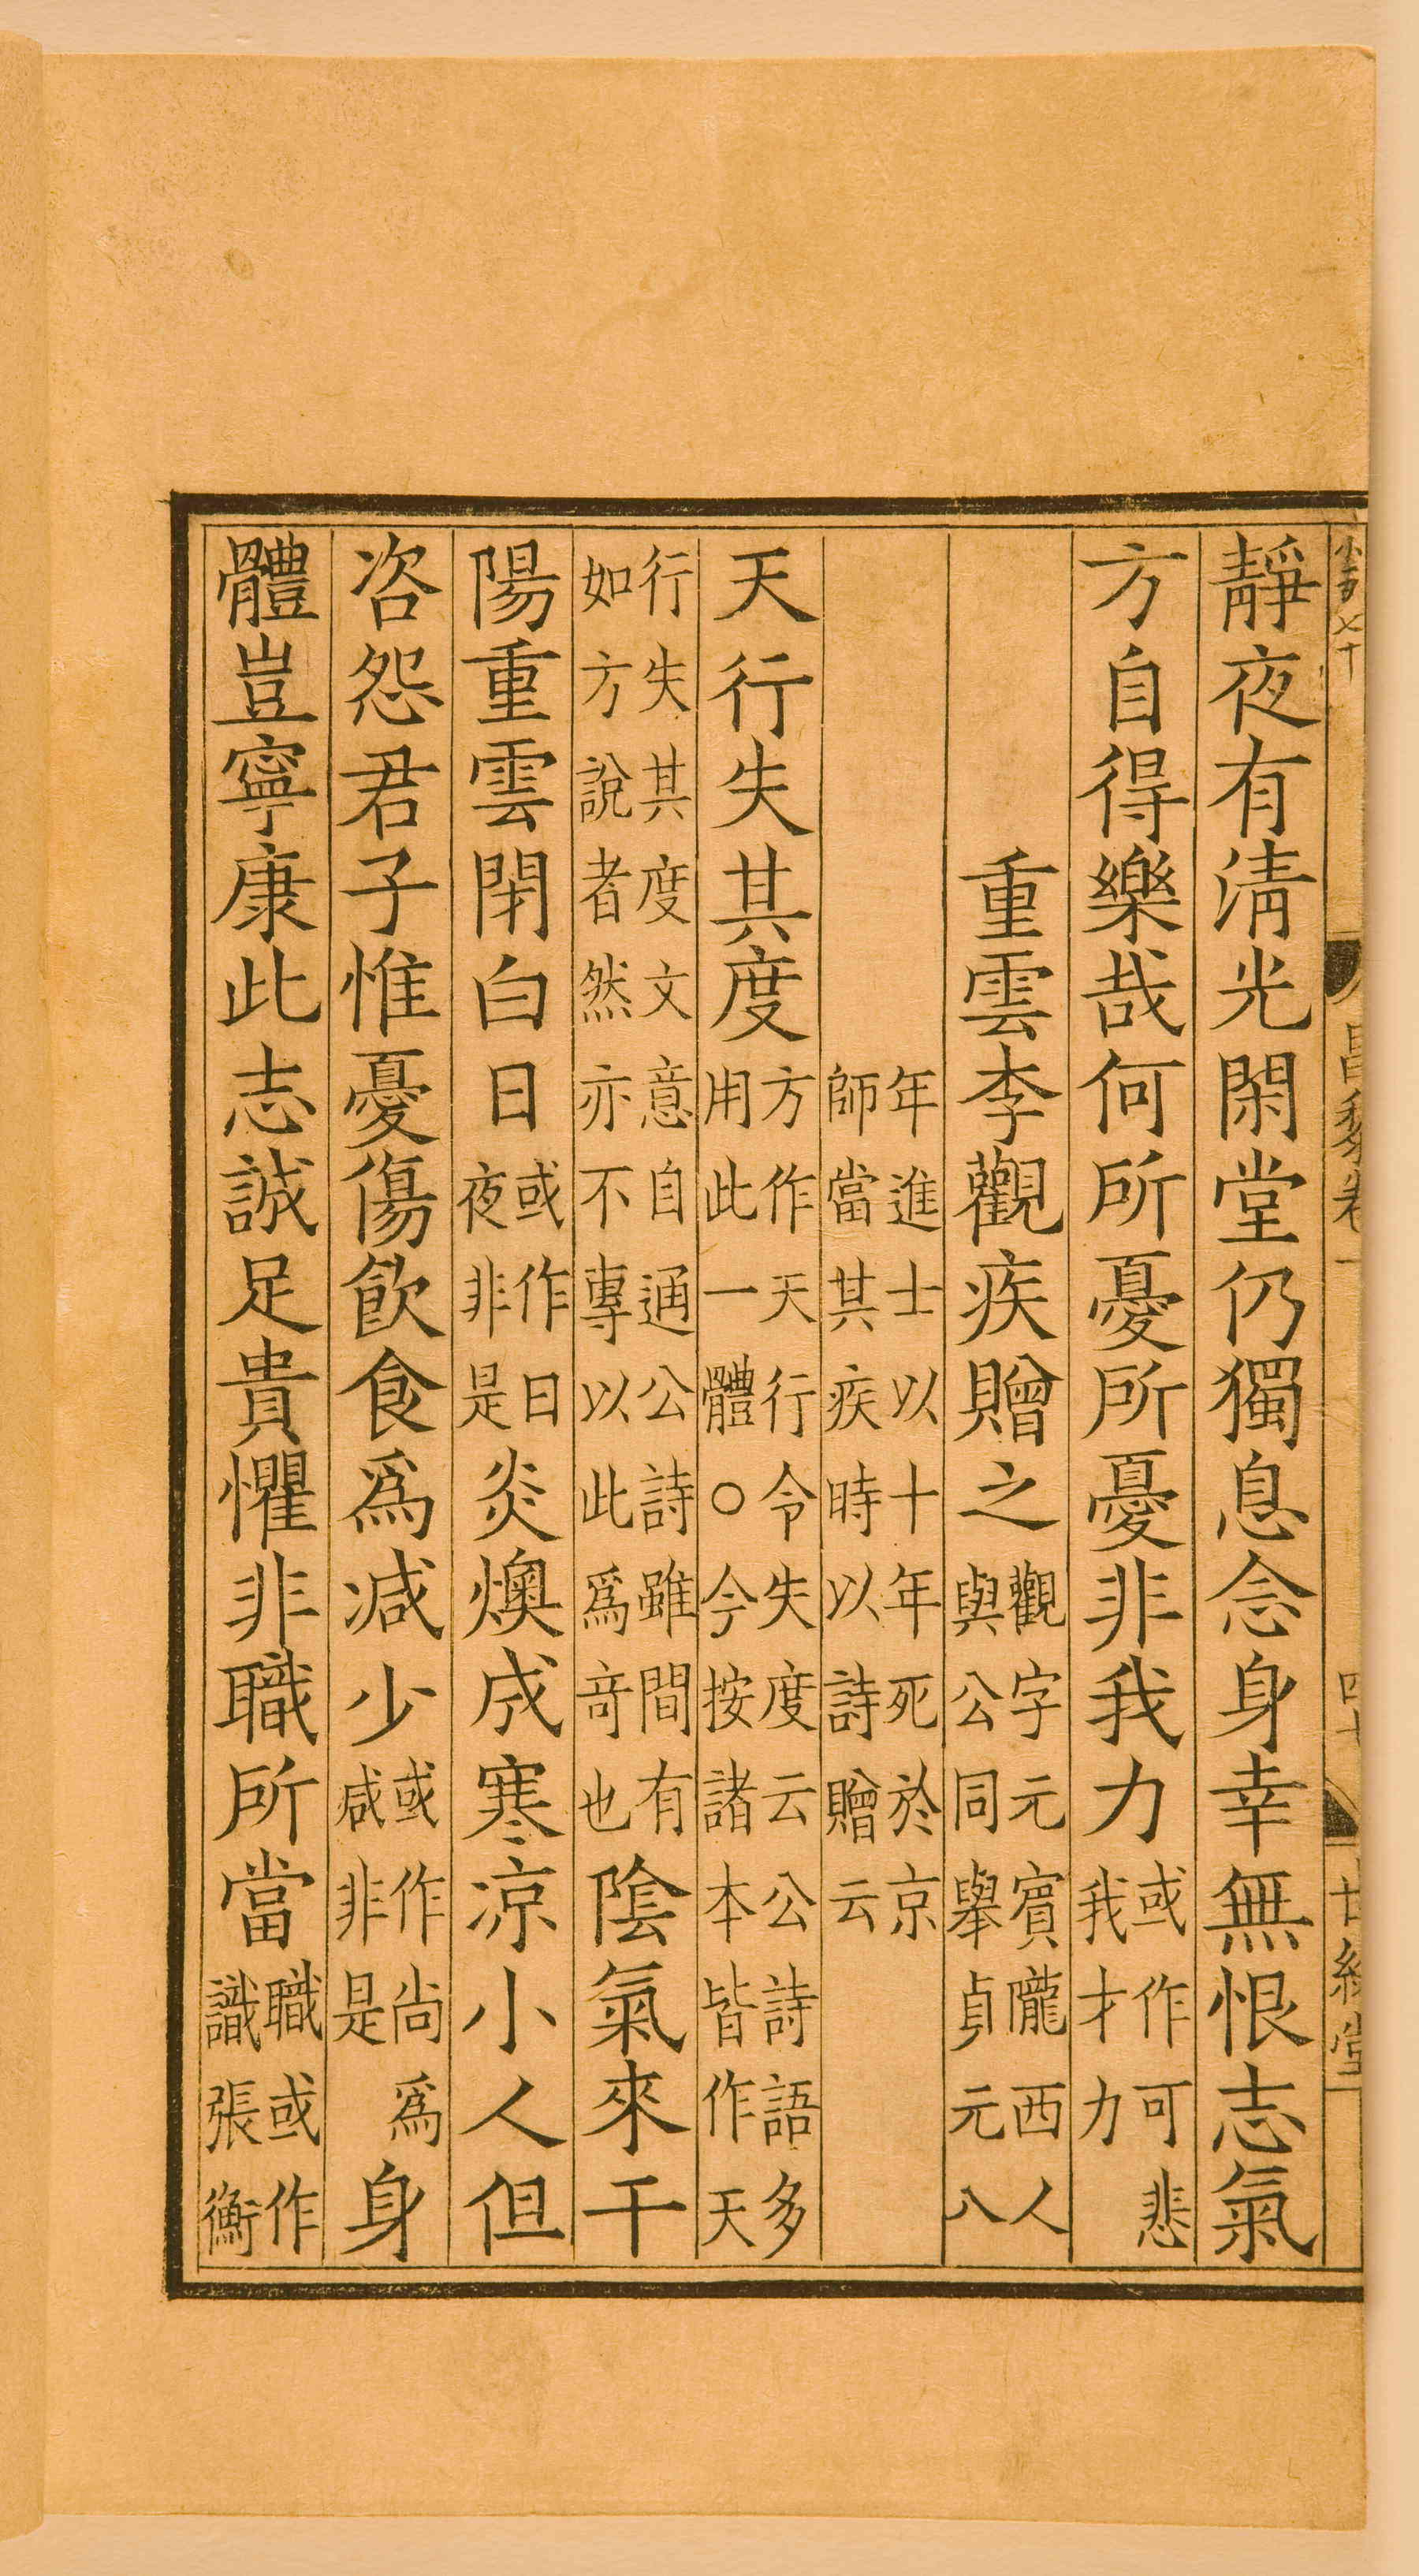 靜夜有清光閑堂仍獨息念身幸無恨志氣
方自得樂哉何所憂所憂非我力或作可悲
我才力
重雲李觀疾贈之觀字元賓隴西人
與公同舉貞元八
年進士以十年死於京
師當其疾時以詩贈云
天行失其度方作天行令失度云公詩語多
用此一體○今按諸本皆作天
行失其度文意自通公詩雖間有
如方說者然亦不專以此爲奇也陰氣來干
陽重雲閉白日或作日
夜非是炎燠成寒凉小人但
咨怨君子惟憂傷飲食爲减少或作尚爲
咸非是身
體豈寧康此志誠足貴懼非職所當職或作
識張衡
昌黎卷一
四十
廿經堂